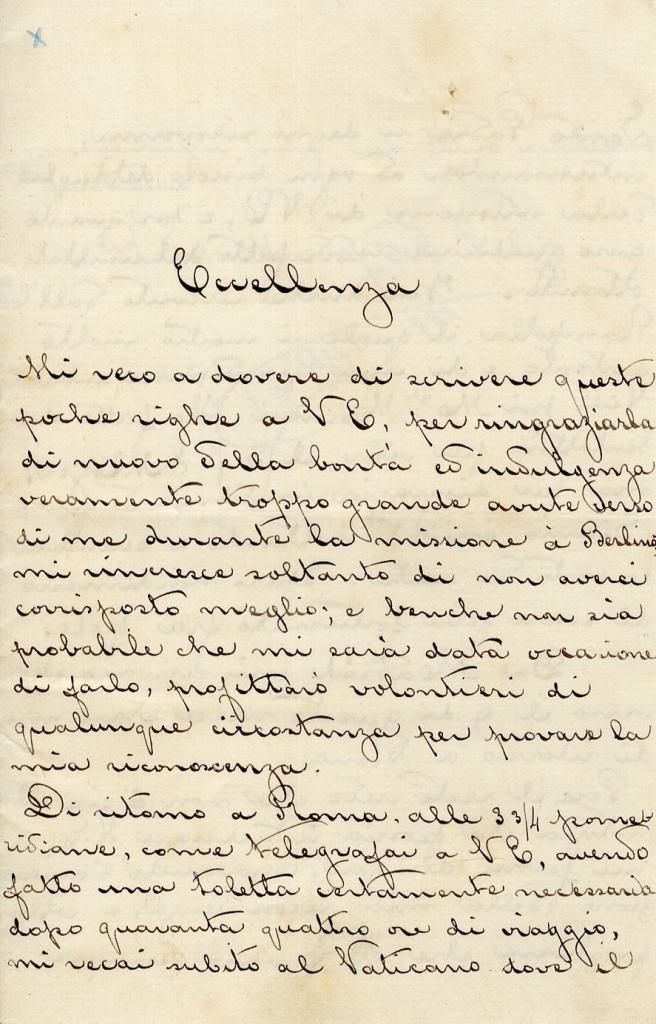 Eccellenza
Mi reco a dovere di scrivere queste
poche righe a V E, per ringraziarla
di nuovo della bontà ed indulgenza
veramente troppo grande avute verso
di me durante la missione à Berlino;
mi rincresce soltanto di non averci
corrisposto meglio; e benche non sia
probabile che mi sarà data occasione
di farlo, profitterò volontieri di
qualunque circostanza per provare la
mia riconoscenza.
Di ritorno a Roma, alle 3 3/4 pome-
ridiane, come telegrafai a V E, avendo
fatto una toletta certamente necessaria
dopo quaranta quattro ore di viaggio,
mi recai subito al Vaticano dove il